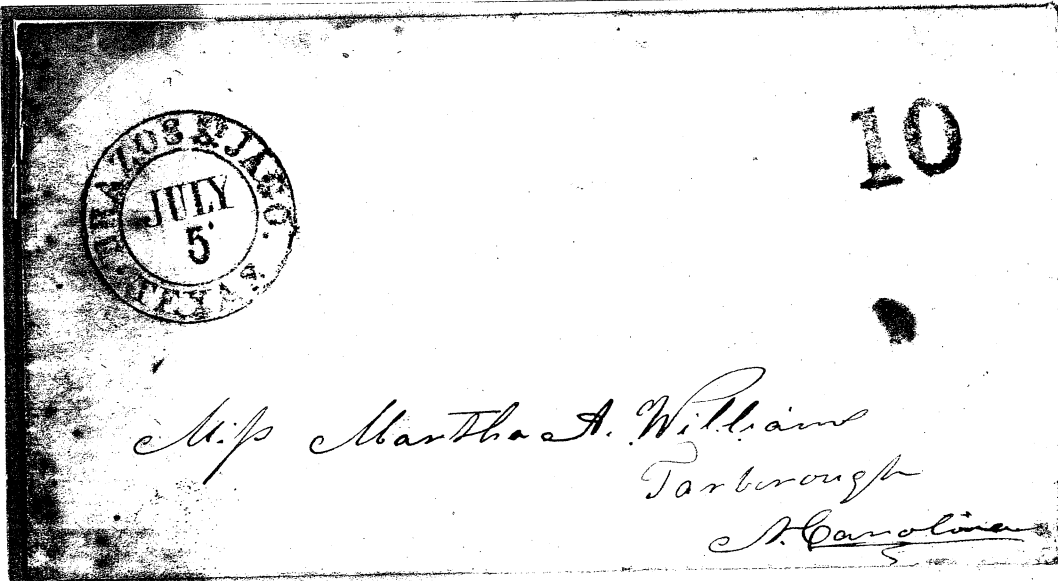 BRAZOS St JAGO.
TEXAS
JULY
5
10
Miss Martha A. Williams
Tarborough
N. Carolina